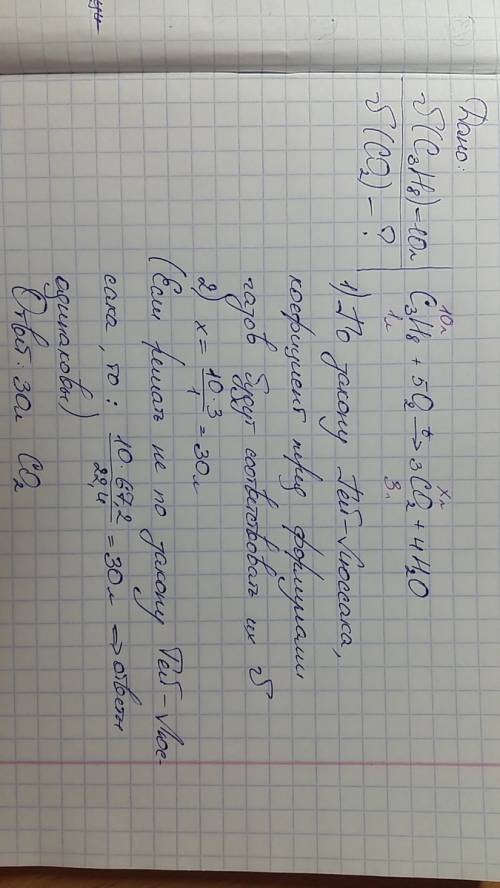 Дано:
V(C₃H₈)=10л
V(CO₂) – ?
10л хл
C₃H₈ + 5O₂ →ᵗ 3CO₂ + 4H₂O
1л 3л
1) По закону Гей-Люссака,
коефициент перед формулами
газов будут соответствовать их V
2) x = 10·3/1 = 30л
(Если решать не по закону Гей-Люс-
сака, то: 10·67,2/22,4 = 30л ⇒ ответы
одинаковы)
Ответ: 30л CO₂